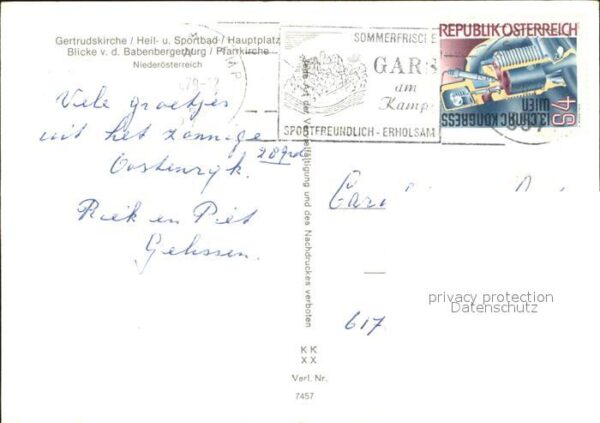 Gertrudskirche / Heil- u. Sportbad / Hauptplatz
Blicke v. d. Babenbergerburg / Pfarrkirche
Niederösterreich
SOMMERFRISCHE
GARS
am
Kamp
SPORTFREUNDLICH - ERHOLSAM
REPUBLIK ÖSTERREICH
13. CIMAC KONGRESS
WIEN
S 4
Vele groetjes
uit het zonnige
Oostenryk.
Riek en Piet
Gelissen.
617
Jede Art der Vervielfältigung und des Nachdruckes verboten
privacy protection
Datenschutz
KK
XX
Verl. Nr.
7457